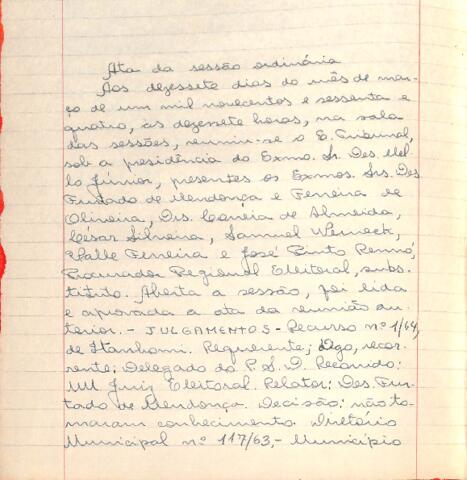 Ata da sessão ordinária
Aos dezessete dias do mês de mar-
ço de um mil novecentos e sessenta e
quatro, às dezessete horas, na sala
das sessões, reuniu-se o E. Tribunal,
sob a presidência do Exmo. Sr. Des. Mel-
lo Júnior, presentes os Exmos. Srs. Des.
Furtado de Mendonça e Ferreira de
Oliveira, Drs. Corrêia de Almeida,
César Silveira, Samuel Werneck,
Valle Ferreira e José Pinto Rennó,
Procurador Regional Eleitoral, subs-
tituto. Aberta a sessão, foi lida
e aprovada a ata da reunião an-
terior. - JULGAMENTOS - Recurso nº 1/64,
de Itanhomi. Requerente; digo, recor-
rente; Delegado do P. S. D. Recorrido:
MM Juiz Eleitoral. Relator: Des. Fur-
tado de Mendonça. Decisão: não to-
maram conhecimento. Diretório
Municipal nº 117/63,- Município